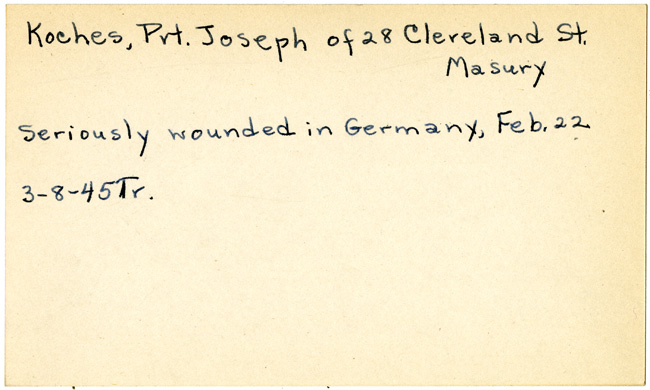 Koches, Pvt. Joseph of 28 Cleveland St.
Masury
Seriously wounded in Germany, Feb. 22
3-8-45 Tr.